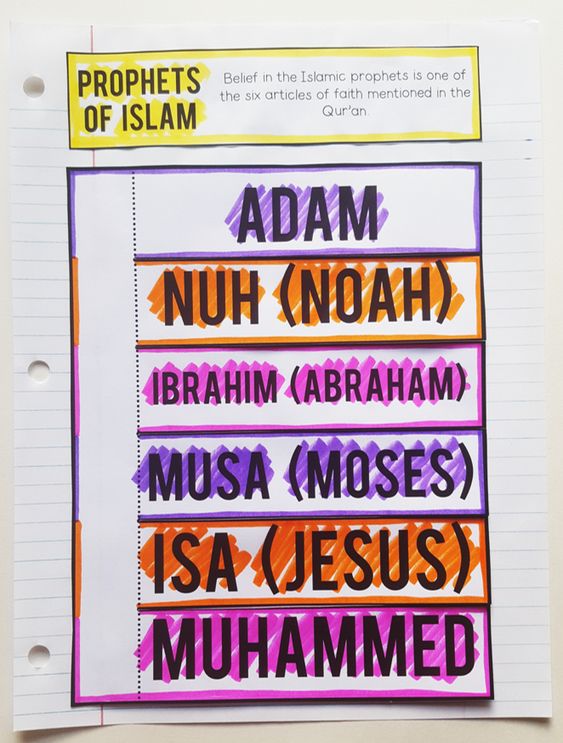 PROPHETS
OF ISLAM
Belief in the Islamic prophets is one of
the six articles of faith mentioned in the
Qur'an.
ADAM
NUH (NOAH)
IBRAHIM (ABRAHAM)
MUSA (MOSES)
ISA (JESUS)
MUHAMMED